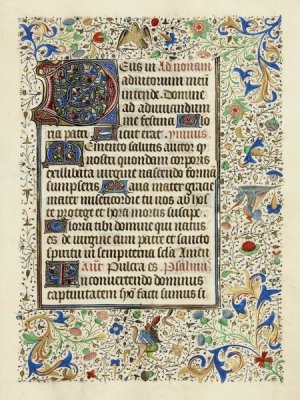 Deus in Ad nonam
adiutorium meū
intende. Domine
ad adiuvandum
me festina Glo
ria patri Sicut erat. ymnus
Memento salutis auctor qͥ
nostri quondam corporis
ex illibata virgine nascendo formā
sumpseris Maria mater gracie
mater misericordie tu nos ab hos
te protege et hora mortis suscipe.
Gloria tibi domine qui natus
es de virgine cum patre et sancto
spiritu in sempiterna secla Amen
Añ Pulcra es Psalmus
In convertendo dominus
captivitatem syō facti sumus si